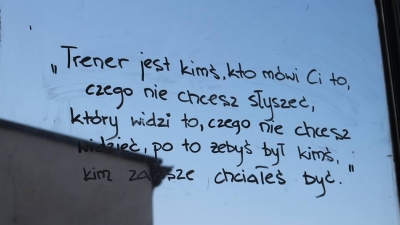 „Trener jest kimś, kto mówi Ci to,
czego nie chcesz słyszeć,
który widzi to, czego nie chcesz
widzieć, po to żebyś był kimś,
kim zawsze chciałeś być."